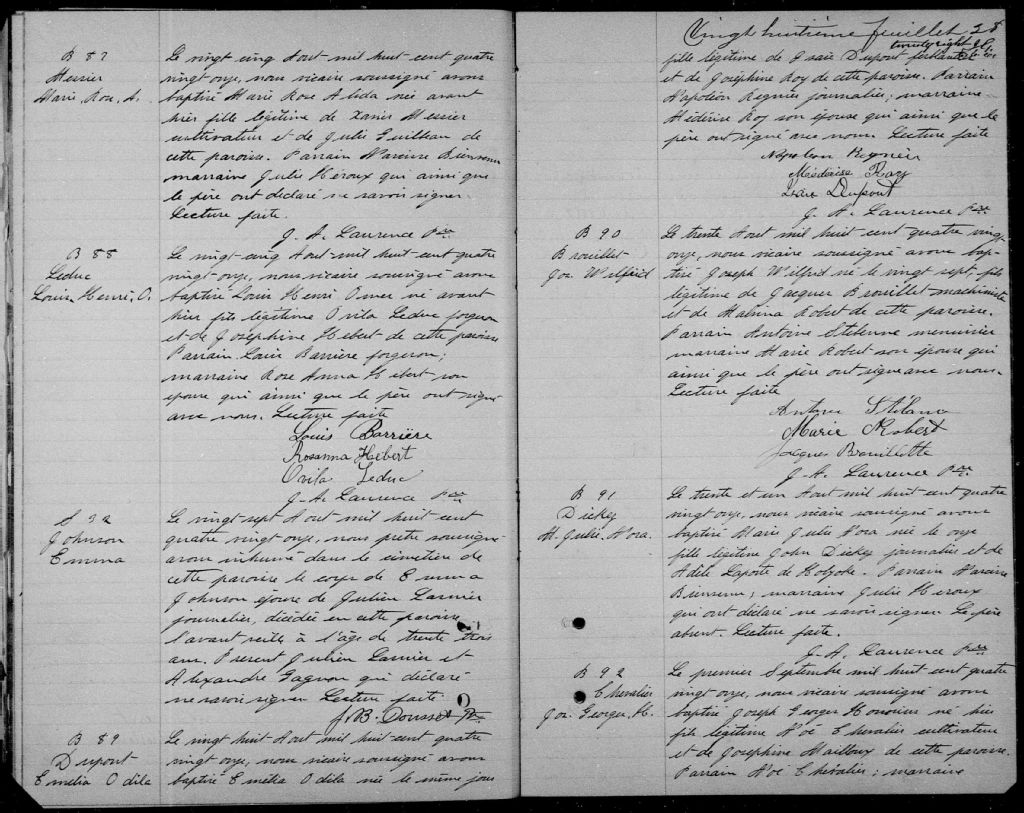 B 87
Messier
Marie Rose A.
Le vingt cinq Aout mil huit cent quatre
vingt onze, nous vicaire soussigné avons
baptisé Marie Rose Alida née avant
hier fille légitime de Xavier Messier
cultivateur et de Julie Guilbau de
cette paroisse. Parrain Narcisse Bienvenu
marraine Julie Héroux qui ainsi que
le père ont déclaré ne savoir signer.
Lecture faite.
J. A. Laurence Ptre
B 88
Leduc
Louis Henri, O.
Le vingt cinq Aout mil huit cent quatre
vingt onze, nous vicaire soussigné avons
baptisé Louis Henri Omer né avant
hier fils légitime Ovila Leduc forgeron
et de Joséphine Hebert de cette paroisse
Parrain Louis Barrière forgeron;
marraine Rose Anna Hebert son
épouse qui ainsi que le père ont signé
avec nous. Lecture faite
Louis Barrière
Rosanna Hébert
Ovila Leduc
J. A. Laurence Ptre
S 32
Johnson
Emma
Le vingt sept Aout mil huit cent
quatre vingt onze, nous prêtre soussigné
avons inhumé dans le cimetière de
cette paroisse le corps de Emma
Johnson épouse de Julien Larmier
journalier, décédée en cette paroisse
l'avant veille à l'âge de trente trois
ans. Présent Julien Larmier et
Alexandre Gagnon qui déclaré
ne savoir signer Lecture faite.
J. B. Dousset Ptre
B 89
Dupont
Emélia Odila
Le vingt huit Aout mil huit cent quatre
vingt onze, nous vicaire soussigné avons
baptisé Emélia Odila née le même jour
Vingt huitième feuillet 28
twenty eight
fille légitime de Isaïe Dupont
et de Joséphine Roy de cette paroisse. Parrain
Napoléon Regnier journalier; marraine
Médérise Roy son épouse qui ainsi que le
père ont signé avec nous. Lecture faite
Napoleon Regnier
Médérise Roy
Isaïe Dupont
J. A. Laurence Ptre
B 90
Brouillet
Jos. Wilfrid
Le trente Aout mil huit cent quatre vingt
onze, nous vicaire soussigné avons bap-
tisé Joseph Wilfrid né le vingt sept fils
légitime de Jacques Brouillet machiniste
et de Malvina Robert de cette paroisse.
Parrain Antoine menuisier
marraine Marie Robert son épouse qui
ainsi que le père ont signé avec nous.
Lecture faite
Marie Robert
Jacques Brouillette
J. A. Laurence Ptre
B 91
Dickey
M. Julie, Nora.
Le trente et un Aout mil huit cent quatre
vingt onze, nous vicaire soussigné avons
baptisé Marie Julie Nora née le onze
fille légitime John Dickey journalier et de
Adèle Laporte de Holyoke. Parrain Narcisse
Bienvenu; marraine Julie Heroux
qui ont déclaré ne savoir signer Le père
absent. Lecture faite.
J. A. Laurence Ptre
B 92
Chevalier
Jos. Georges, H.
Le premier Septembre mil huit cent quatre
vingt onze, nous vicaire soussigné avons
baptisé Joseph Georges Honorius né hier
fils légitime Noé Chevalier cultivateur
et de Joséphine Mailloux de cette paroisse.
Parrain Noé Chevalier; marraine